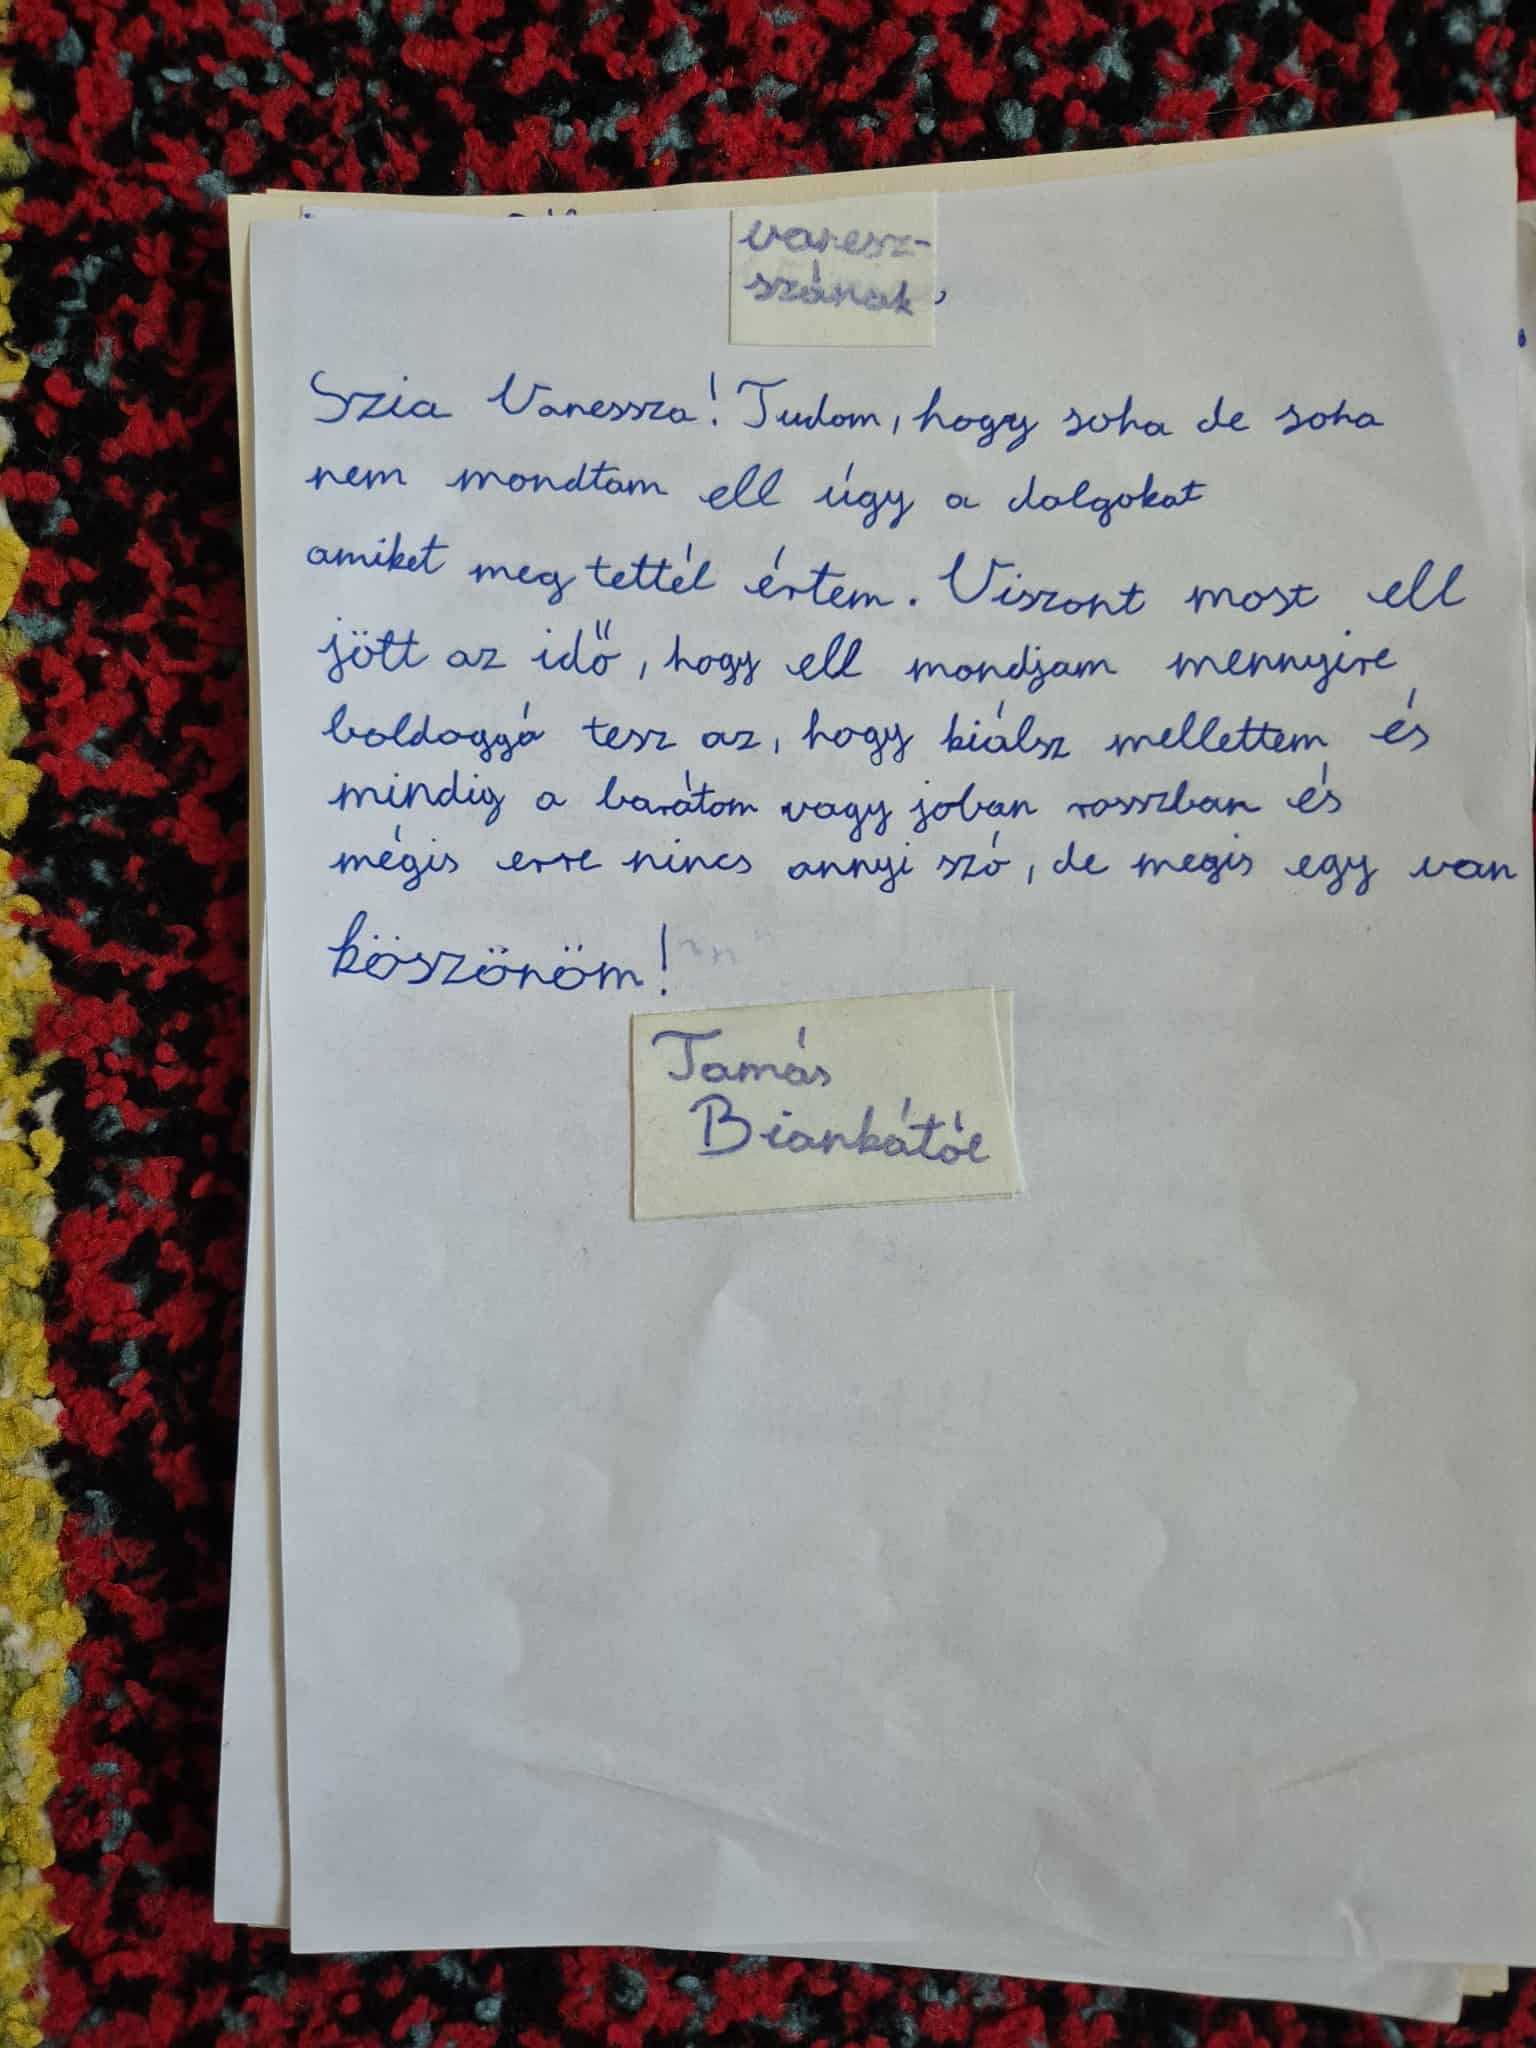 vanesz-
szának,
Szia Vanessza! Tudom, hogy soha de soha
nem mondtam ell úgy a dolgokat
amiket meg tettél értem. Viszont most ell
jött az idő, hogy ell mondjam mennyire
boldoggá tesz az, hogy kiálsz mellettem és
mindig a barátom vagy joban rosszban és
mégis erre nincs annyi szó, de megis egy van
köszönöm!
Tamás
Biankától